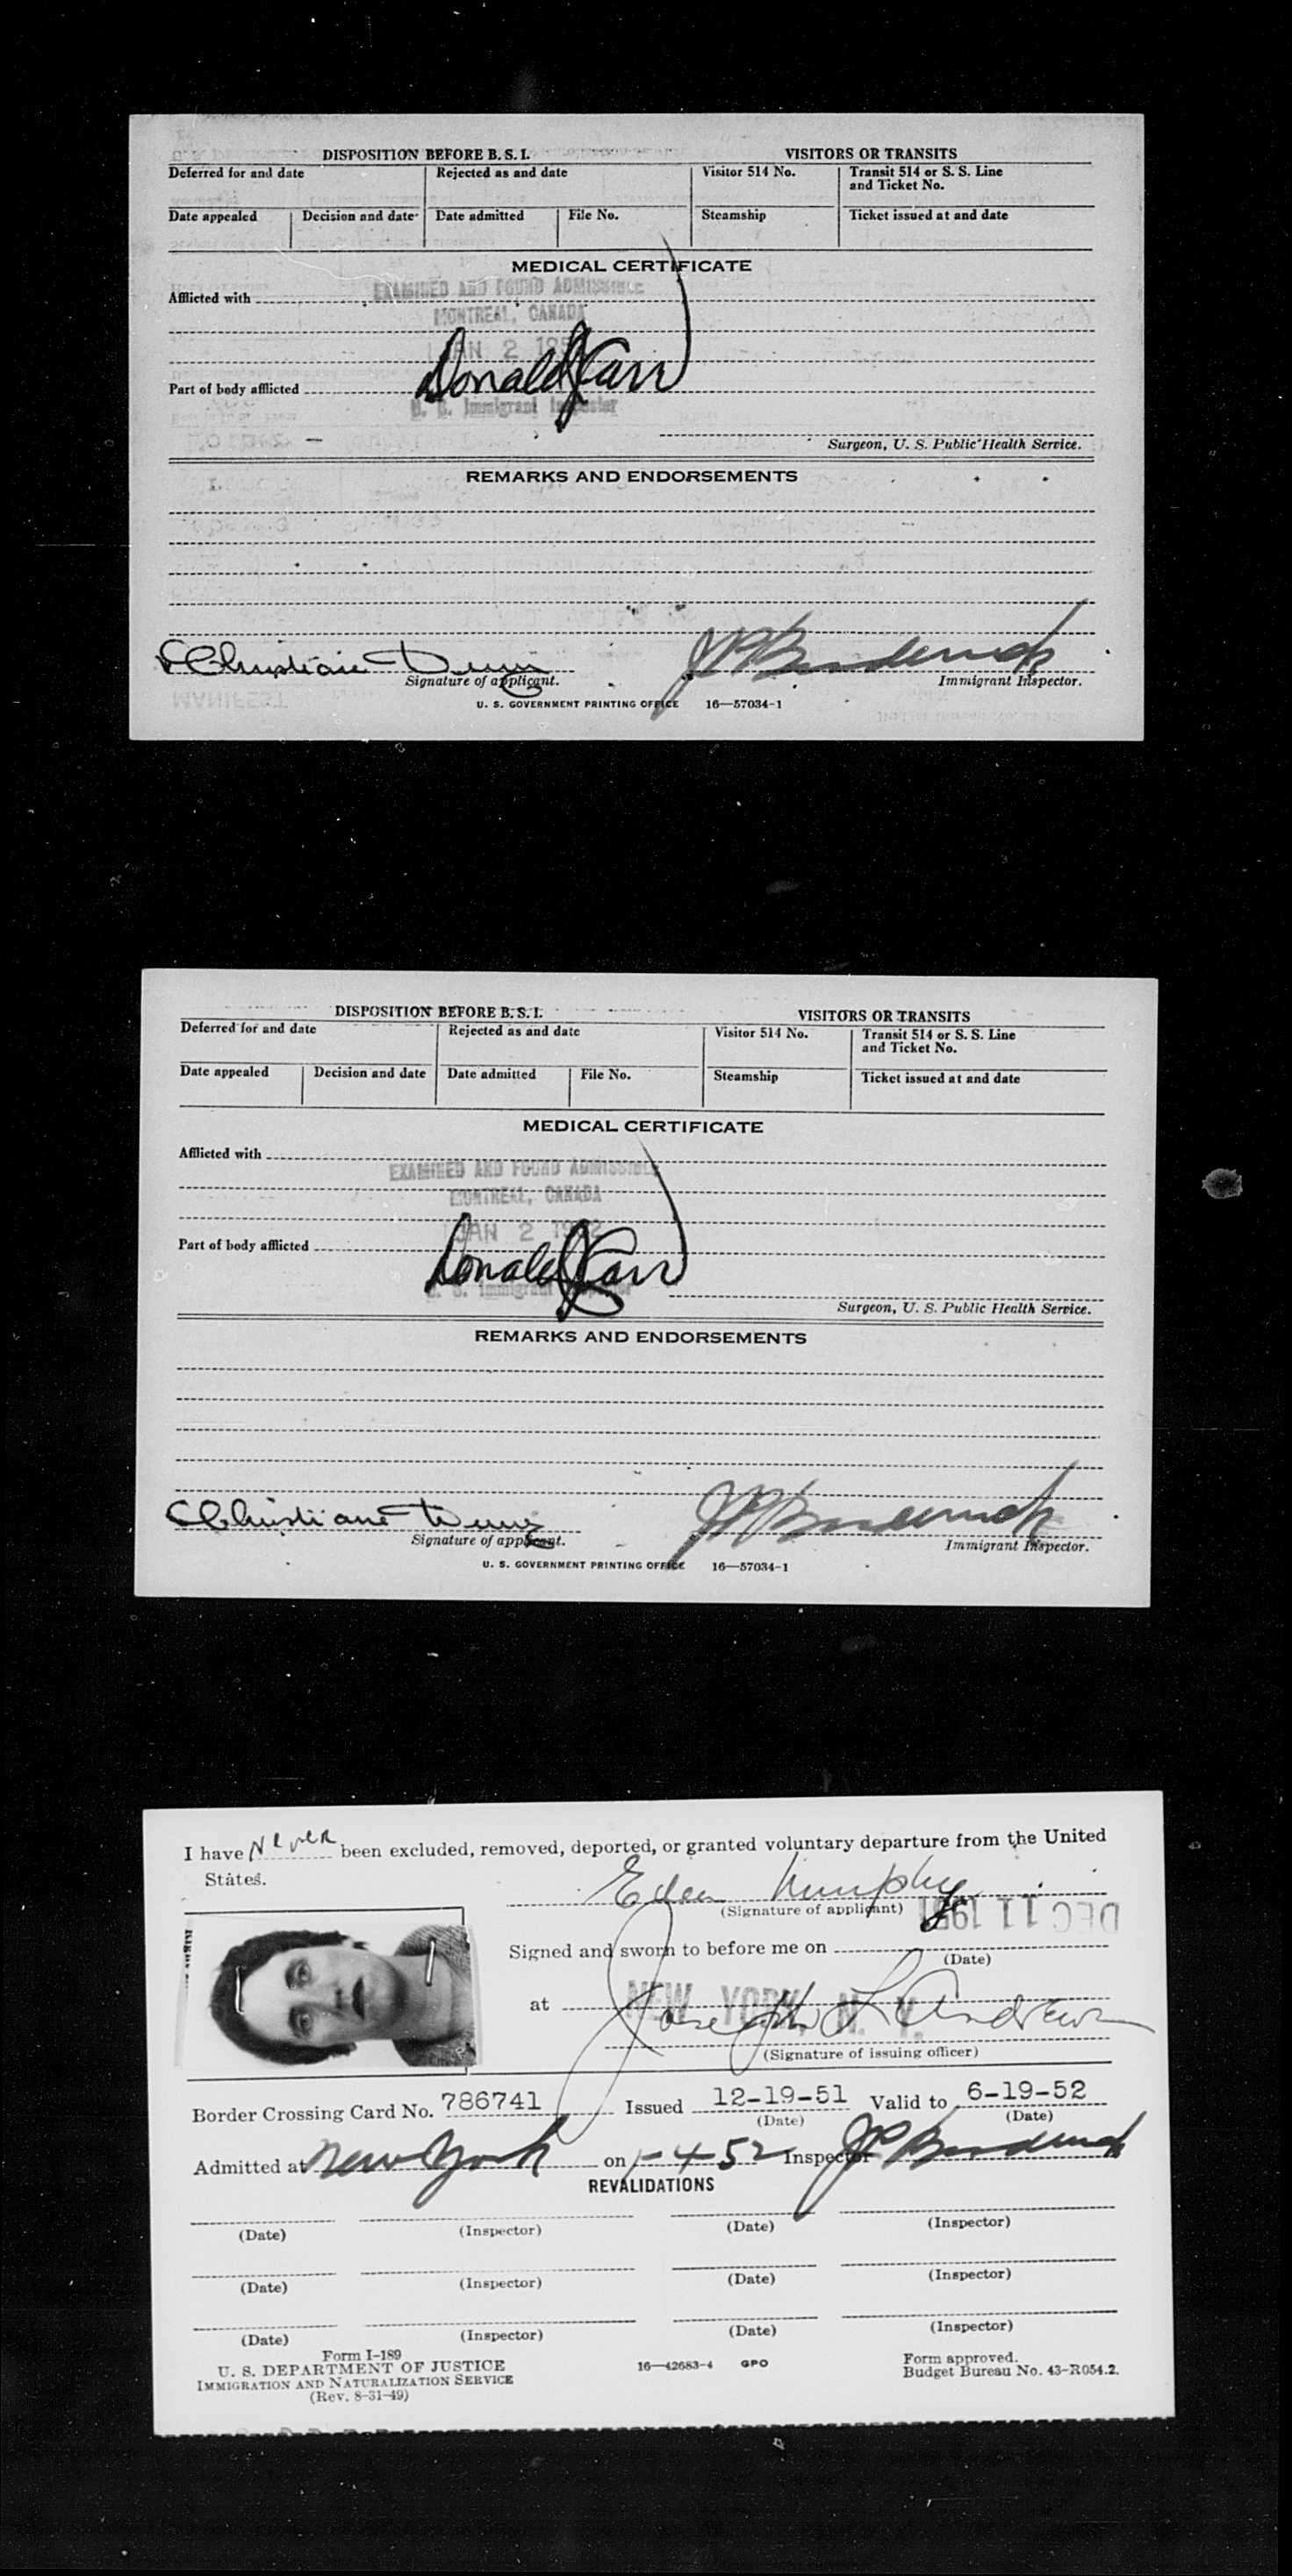 DISPOSITION BEFORE B. S. I. VISITORS OR TRANSITS
Deferred for and date Rejected as and date Visitor 514 No. Transit 514 or S. S. Line
and Ticket No.
Date appealed Decision and date Date admitted File No. Steamship Ticket issued at and date
MEDICAL CERTIFICATE
Afflicted with EXAMINED AND FOUND ADMISSIBLE
MONTREAL, CANADA
JAN 2
Donald J Carr
Part of body afflicted
U. S. Immigrant Inspector
Surgeon, U. S. Public Health Service.
REMARKS AND ENDORSEMENTS
Christiane
Signature of applicant. Immigrant Inspector.
U. S. GOVERNMENT PRINTING OFFICE 16—57034-1
MANIFEST
DISPOSITION BEFORE B. S. I. VISITORS OR TRANSITS
Deferred for and date Rejected as and date Visitor 514 No. Transit 514 or S. S. Line
and Ticket No.
Date appealed Decision and date Date admitted File No. Steamship Ticket issued at and date
MEDICAL CERTIFICATE
Afflicted with
EXAMINED AND FOUND ADMISSIBLE
MONTREAL, CANADA
JAN 2 1952
Part of body afflicted Donald J Carr
U. S. Immigrant Inspector
Surgeon, U. S. Public Health Service.
REMARKS AND ENDORSEMENTS
Christiane
Signature of applicant. Immigrant Inspector.
U. S. GOVERNMENT PRINTING OFFICE 16—57034-1
I have Never been excluded, removed, deported, or granted voluntary departure from the United
States.
Murphy
(Signature of applicant) DEC 11 1951
Signed and sworn to before me on
(Date)
at NEW YORK, N. Y.
Joseph L Andrews
(Signature of issuing officer)
Border Crossing Card No. 786741 Issued 12-19-51 Valid to 6-19-52
(Date) (Date)
Admitted at New York on 1-4-52 Inspector
REVALIDATIONS
(Date) (Inspector) (Date) (Inspector)
(Date) (Inspector) (Date) (Inspector)
(Date) (Inspector) (Date) (Inspector)
Form I-189
U. S. DEPARTMENT OF JUSTICE
IMMIGRATION AND NATURALIZATION SERVICE
(Rev. 8-31-49)
16—42683-4 GPO
Form approved.
Budget Bureau No. 43-R054.2.